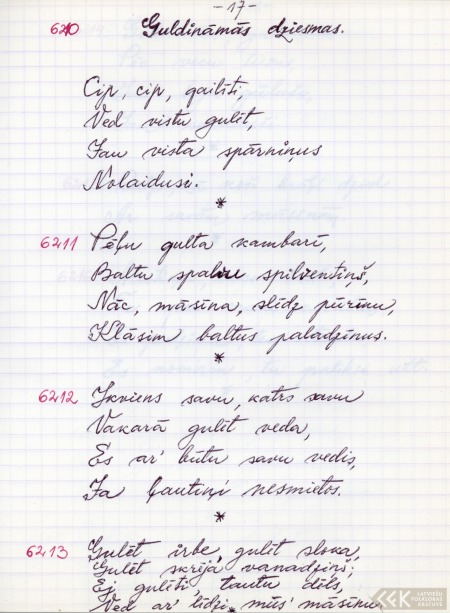 - 17 -
6210 Guldināmās dziesmas.
Cip, cip, gailīti,
Ved vistu gulēt,
Jau vista spārniņus
Nolaidusi.
*
6211 Pēļu gulta kambarī,
Baltu spalvu spilventiņš,
Nāc, māsiņa, slēdz pūriņu,
Klāsim baltus paladziņus.
*
6212 Ikviens savu, katrs savu
Vakarā gulēt veda,
Es ar' būtu savu vedis,
Ja ļautiņi nesmietos.
*
6213 Gulēt irbe, gulēt sloka,
Gulēt skrēja vanadziņš;
Ej gulēti tautu dēls,
Ved ar' līdzi mūs' māsiņu.
LATVIEŠU
FOLKLORAS
KRĀTUVE